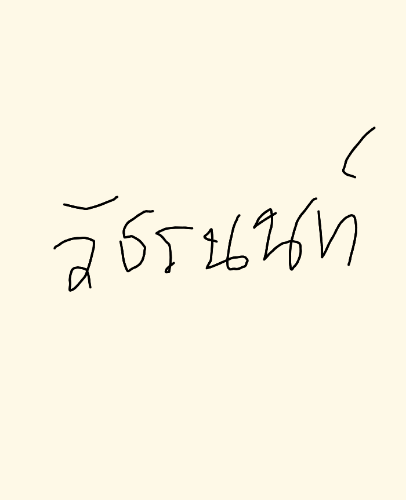 ลัธรนนท์